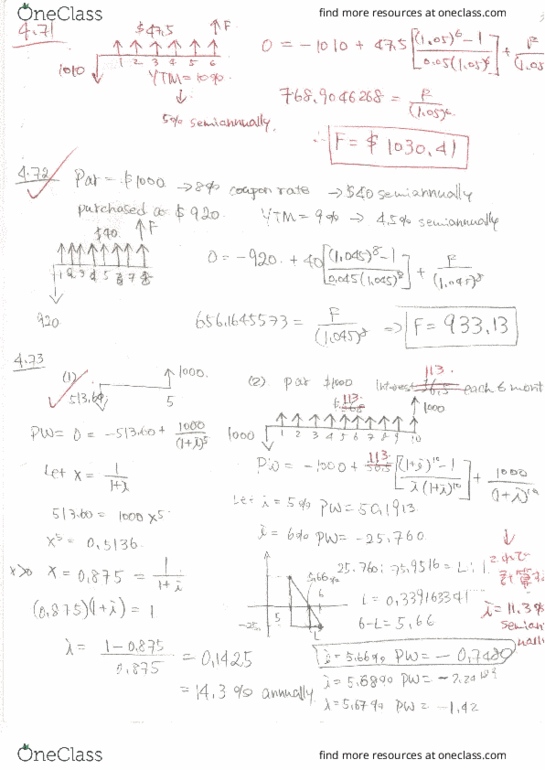 OneClass
find more resources at oneclass.com
4.71
$47.5
F
1 2 3 4 5 6
1010
YTM = 10%
5% semiannually.
0 = -1010 + 47.5 [(1.05)^6 - 1 / 0.05(1.05)^6] + F / (1.05
768.9046268 = F / (1.05)^6
∴ F = $ 1030.41
4.72
Par = $1000 → 8% coupon rate → $40 semiannually
purchased at $920. YTM = 9% ⇒ 4.5% semiannually
$40. F
1 2 3 4 5 6 7 8
920
0 = -920. + 40 [(1.045)^8 - 1 / 0.045(1.045)^8] + F / (1.045)^8
656.1645573 = F / (1.045)^8 ⇒ F = 933.13
4.73
(1)
1000.
513.60
5
PW = 0 = -513.60 + 1000 / (1+i)^5
Let x = 1 / 1+i
513.60 = 1000 x^5
x^5 = 0.5136.
x>0 x = 0.875 = 1 / 1+i
(0.875)(1+i) = 1
i = 1-0.875 / 0.875 = 0.1425
= 14.3% annually.
(2) par $1000 Interest 113. each 6 mont
113.
1000
1000
1 2 3 4 5 6 7 8 9 10
PW = -1000 + 113. [(1+i)^10 - 1 / i(1+i)^10] + 1000 / (1+i)^10
Let i = 5% PW = 50.1913
i = 6% PW = -25.760
25.760 : 75.9516 = L : 1
5.66%
5
6
L
-25.
L = 0.339163341
6-L = 5.66
i = 11.3%
semian
nually
i = 5.66% PW = -0.7480
i = 5.68% PW =
i = 5.67% PW = -1.42
OneClass
find more resources at oneclass.com